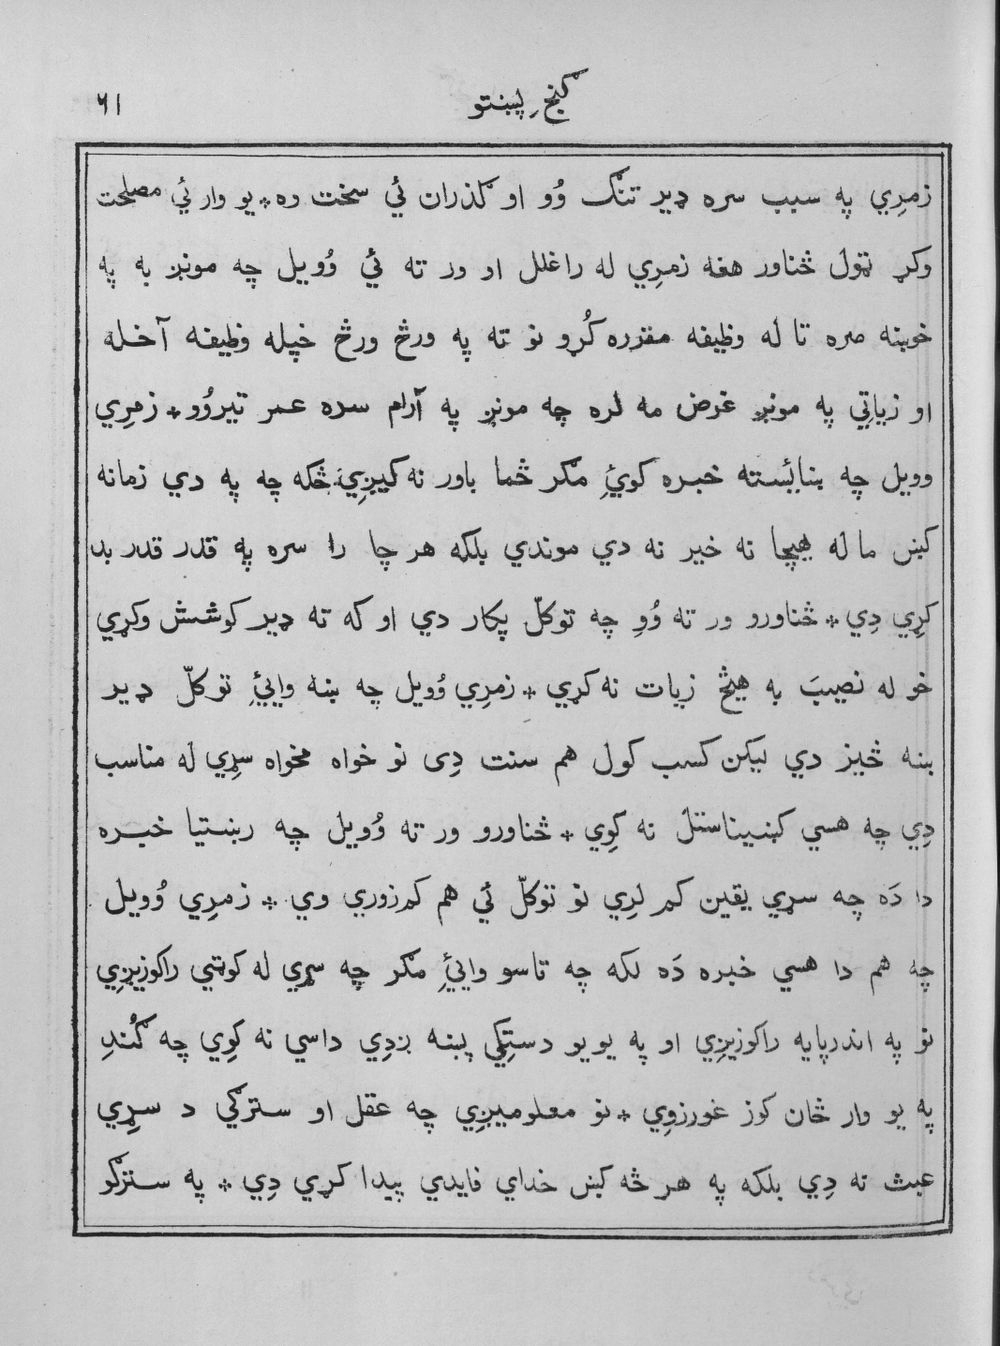 گنجِ پښتو
٦١
زمرِي په سبب سره ډیر تنګ وُو او ګذران ئي سخت وه * یو وار ئي مصلحت
وکړ ټول څناور هغه زمرِي له راغلل او ور ته ئي وُویل چه مونږ به په
خوښه سره تا له وظیفه مقرره کُړو نو ته په ورڅ ورڅ خپله وظیفه آخله
او زیاتِي په مونږ غرض مه لره چه مونږ په آرام سره عمر تیروُو * زمرِي
وویل چه ښائسته خبره کوئِ مګر څما باور نه کیږِي څکه چه په دي زمانه
کښ ما له هیچا نه خیر نه دي موندي بلکه هر چا را سره په قدر قدر بد
کړِي دِي * څناورو ور ته وُوِ چه توکلّ پکار دي او که ته ډیر کوشش وکړي
خو له نصیبَ به هیڅ زیات نه کړي * زمرِي وُویل چه ښه وایئِ توکلّ ډیر
ښه څیز دي لیکن کسب کول هم سنت دِی نو خواه مخواه سړِي له مناسب
دِي چه هسي کښیناستل نه کوِي * څناورو ور ته وُویل چه رښتیا خبره
دا دَه چه سړي یقین کم لرِي نو توکلّ ئي هم کمزوري وي * زمرِي وُویل
چه هم دا هسي خبره دَه لکه چه تاسو وایئِ مګر چه سړي له کوټي راکوزیږِي
نو په اندرپایه راکوزیږِي او په یو یو دستِکي پښه ږدِي داسي نه کوِي چه ګُندِ
په یو وار څان کوز غورزوِي * نو معلومیږِي چه عقل او سترګي د سړِي
عبث نه دِي بلکه په هر څه کښ خداي فایدي پیدا کړي دِي * په سترګو